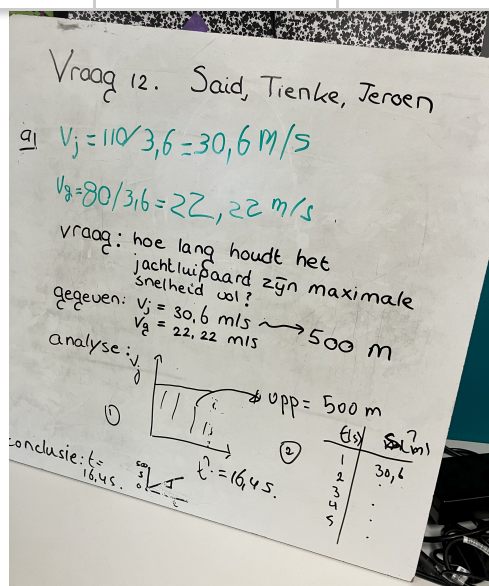 Vraag 12. Said, Tienke, Jeroen
a) Vj = 110/3,6 = 30,6 m/s
Vg = 80/3,6 = 22,22 m/s
vraag: hoe lang houdt het
jachtluipaard zijn maximale
snelheid vol?
gegeven: Vj = 30,6 m/s → 500 m
Vg = 22,22 m/s
analyse: Vj
opp = 500 m
①
②
t(s) s(m)?
1
2 30,6
3 .
4 .
5 .
t? = 16,4 s.
conclusie: t =
16,4 s.